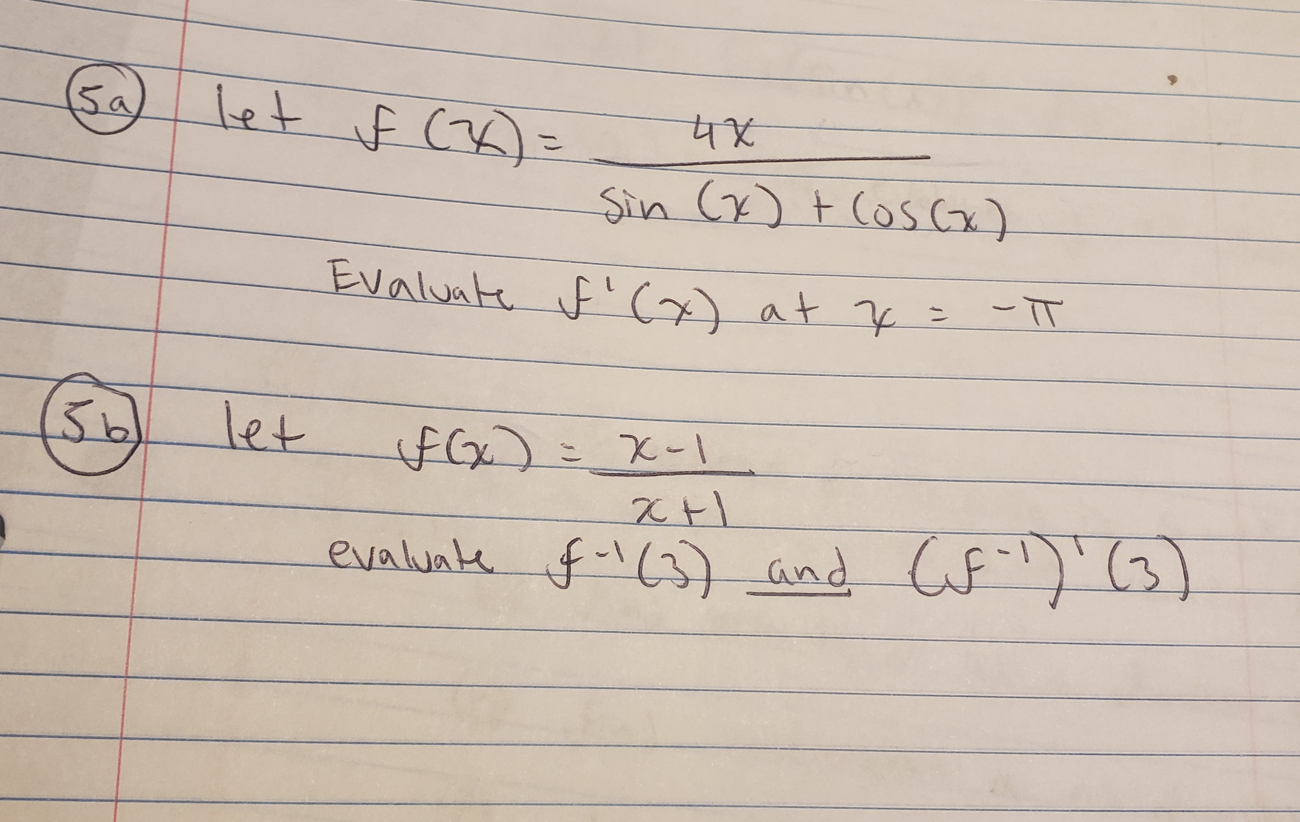 5a let f(x) = 4x / sin(x) + cos(x)
Evaluate f'(x) at x = -π
5b let f(x) = x-1 / x+1
evaluate f⁻¹(3) and (f⁻¹)'(3)